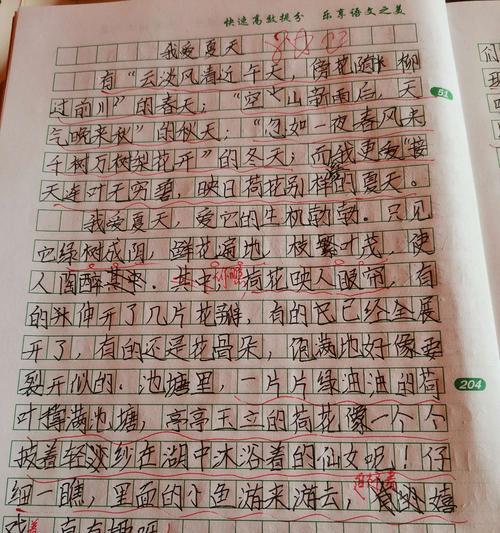 快速高效提分 乐享语文之美
我爱夏天
有“云淡风清近午天，傍花随柳
过前川”的春天；“空山新雨后，天
气晚来秋”的秋天；“忽如一夜春风来
千树万树梨花开”的冬天；而我更爱“接
天连叶无穷碧，映日荷花别样的夏天。
我爱夏天，爱它的生机勃勃。只见
它绿树成阴，鲜花遍地，枝繁叶茂，使
人陶醉其中．其中，荷花映入眼帘，有
的只伸开了几片花瓣，有的已已经全展
开了，有的还是花骨朵，饱满地好像要
裂开似的．池塘里，一片片绿油油的荷
叶撑满池塘，亭亭玉立的荷花像一个个
披着轻纱在湖中沐浴着的仙女呢！仔
细一瞧，里面的小鱼游来游去，嬉
戏着真有趣呀！
51
204
们